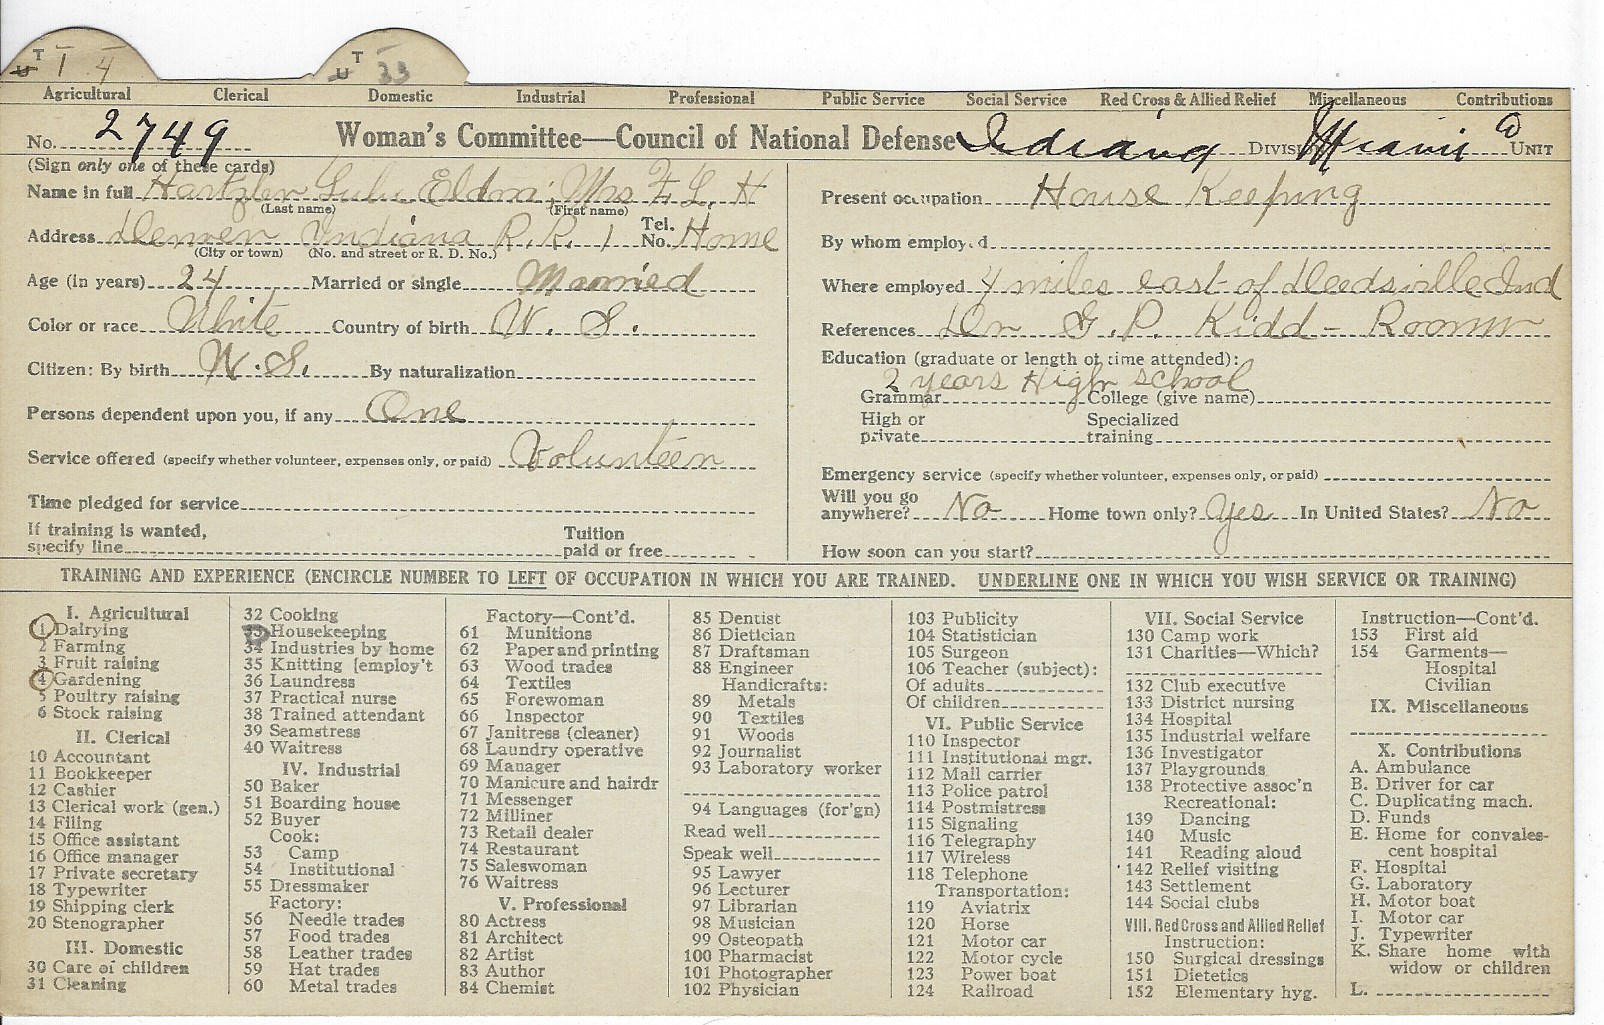 T
U 1 4
T
U 33
Agricultural Clerical Domestic Industrial Professional Public Service Social Service Red Cross & Allied Relief Miscellaneous Contributions
No. 2749 Woman's Committee—Council of National Defense Indiana Division Miami Unit
(Sign only one of these cards)
Name in full Hartzler Lulu Eldora; Mrs F. L. H
(Last name) (First name)
Address Denver Indiana R. R. 1 Tel. No. Home
(City or town) (No. and street or R. D. No.)
Age (in years) 24 Married or single Married
Color or race White Country of birth U. S.
Citizen: By birth U.S. By naturalization
Persons dependent upon you, if any One
Service offered (specify whether volunteer, expenses only, or paid) Volunteer
Time pledged for service
If training is wanted, specify line Tuition paid or free
Present occupation House Keeping
By whom employed
Where employed 4 miles east of Deedsville Ind
References Dr G. P. Kidd - Roann
Education (graduate or length of time attended):
2 years High school
Grammar College (give name)
High or private Specialized training
Emergency service (specify whether volunteer, expenses only, or paid)
Will you go anywhere? No Home town only? Yes In United States? No
How soon can you start?
TRAINING AND EXPERIENCE (ENCIRCLE NUMBER TO LEFT OF OCCUPATION IN WHICH YOU ARE TRAINED. UNDERLINE ONE IN WHICH YOU WISH SERVICE OR TRAINING)
I. Agricultural
1 Dairying
2 Farming
3 Fruit raising
4 Gardening
5 Poultry raising
6 Stock raising
II. Clerical
10 Accountant
11 Bookkeeper
12 Cashier
13 Clerical work (gen.)
14 Filing
15 Office assistant
16 Office manager
17 Private secretary
18 Typewriter
19 Shipping clerk
20 Stenographer
III. Domestic
30 Care of children
31 Cleaning
32 Cooking
33 Housekeeping
34 Industries by home
35 Knitting [employ't
36 Laundress
37 Practical nurse
38 Trained attendant
39 Seamstress
40 Waitress
IV. Industrial
50 Baker
51 Boarding house
52 Buyer
Cook:
53 Camp
54 Institutional
55 Dressmaker
Factory:
56 Needle trades
57 Food trades
58 Leather trades
59 Hat trades
60 Metal trades
Factory—Cont'd.
61 Munitions
62 Paper and printing
63 Wood trades
64 Textiles
65 Forewoman
66 Inspector
67 Janitress (cleaner)
68 Laundry operative
69 Manager
70 Manicure and hairdr
71 Messenger
72 Milliner
73 Retail dealer
74 Restaurant
75 Saleswoman
76 Waitress
V. Professional
80 Actress
81 Architect
82 Artist
83 Author
84 Chemist
85 Dentist
86 Dietician
87 Draftsman
88 Engineer
Handicrafts:
89 Metals
90 Textiles
91 Woods
92 Journalist
93 Laboratory worker
94 Languages (for'gn)
Read well
Speak well
95 Lawyer
96 Lecturer
97 Librarian
98 Musician
99 Osteopath
100 Pharmacist
101 Photographer
102 Physician
103 Publicity
104 Statistician
105 Surgeon
106 Teacher (subject):
Of adults
Of children
VI. Public Service
110 Inspector
111 Institutional mgr.
112 Mail carrier
113 Police patrol
114 Postmistress
115 Signaling
116 Telegraphy
117 Wireless
118 Telephone
Transportation:
119 Aviatrix
120 Horse
121 Motor car
122 Motor cycle
123 Power boat
124 Railroad
VII. Social Service
130 Camp work
131 Charities—Which?
132 Club executive
133 District nursing
134 Hospital
135 Industrial welfare
136 Investigator
137 Playgrounds
138 Protective assoc'n
Recreational:
139 Dancing
140 Music
141 Reading aloud
142 Relief visiting
143 Settlement
144 Social clubs
VIII. Red Cross and Allied Relief
Instruction:
150 Surgical dressings
151 Dietetics
152 Elementary hyg.
Instruction—Cont'd.
153 First aid
154 Garments—
Hospital
Civilian
IX. Miscellaneous
X. Contributions
A. Ambulance
B. Driver for car
C. Duplicating mach.
D. Funds
E. Home for convales-
cent hospital
F. Hospital
G. Laboratory
H. Motor boat
I. Motor car
J. Typewriter
K. Share home with
widow or children
L.